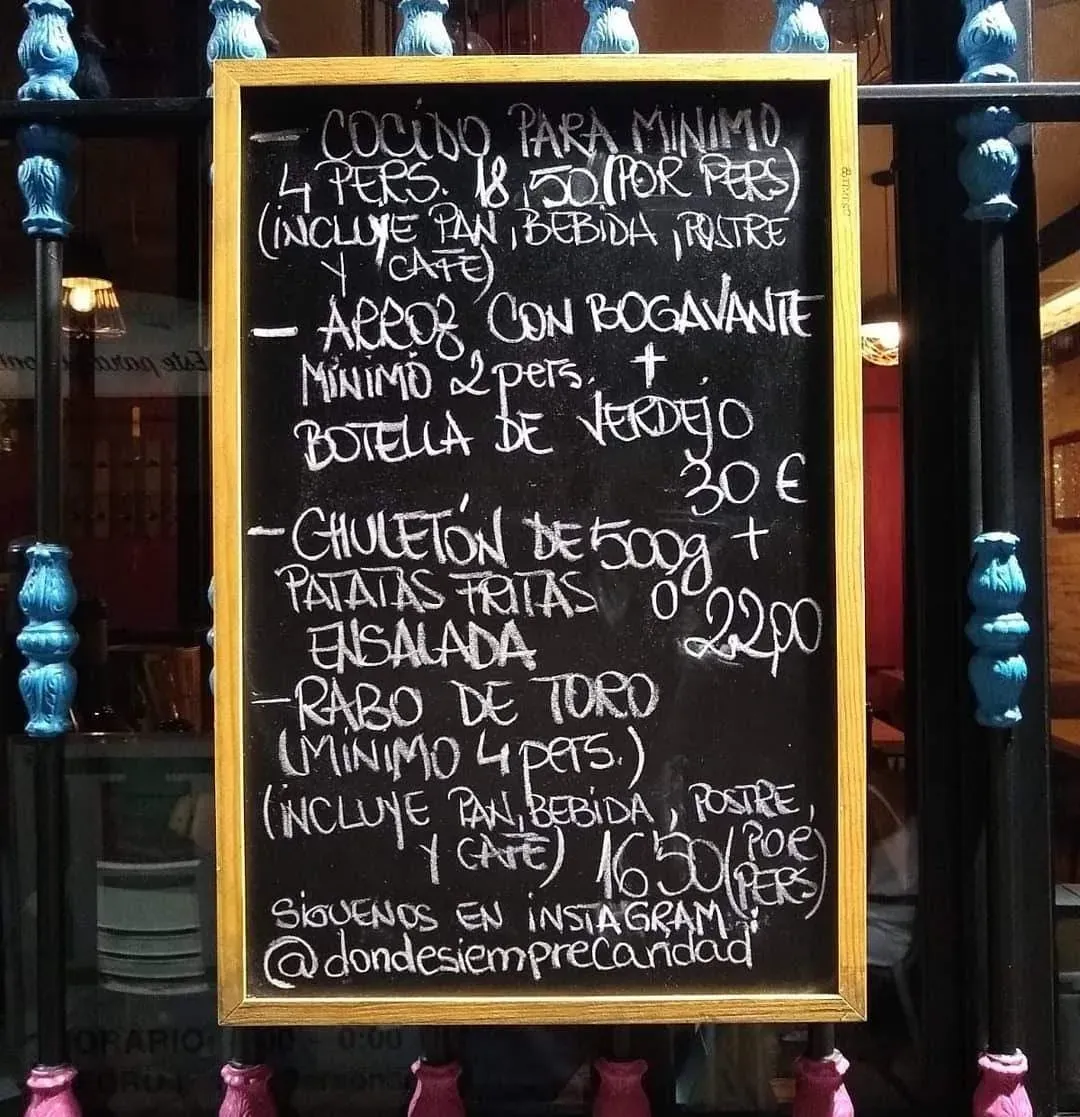 - COCIDO PARA MINIMO
4 PERS. 18,50 (POR PERS)
(INCLUYE PAN, BEBIDA, POSTRE
Y CAFE)
- ARROZ CON BOGAVANTE
MINIMO 2 pers. +
BOTELLA DE VERDEJO
30 €
- CHULETÓN DE 500g +
PATATAS FRITAS O
ENSALADA 22,00
- RABO DE TORO
(MINIMO 4 pers.)
(INCLUYE PAN, BEBIDA, POSTRE,
Y CAFE) 16'50 (POR
PERS)
SIGUENOS EN INSTAGRAM
@dondesiemprecaridad
Este para
ORARIO 0:00